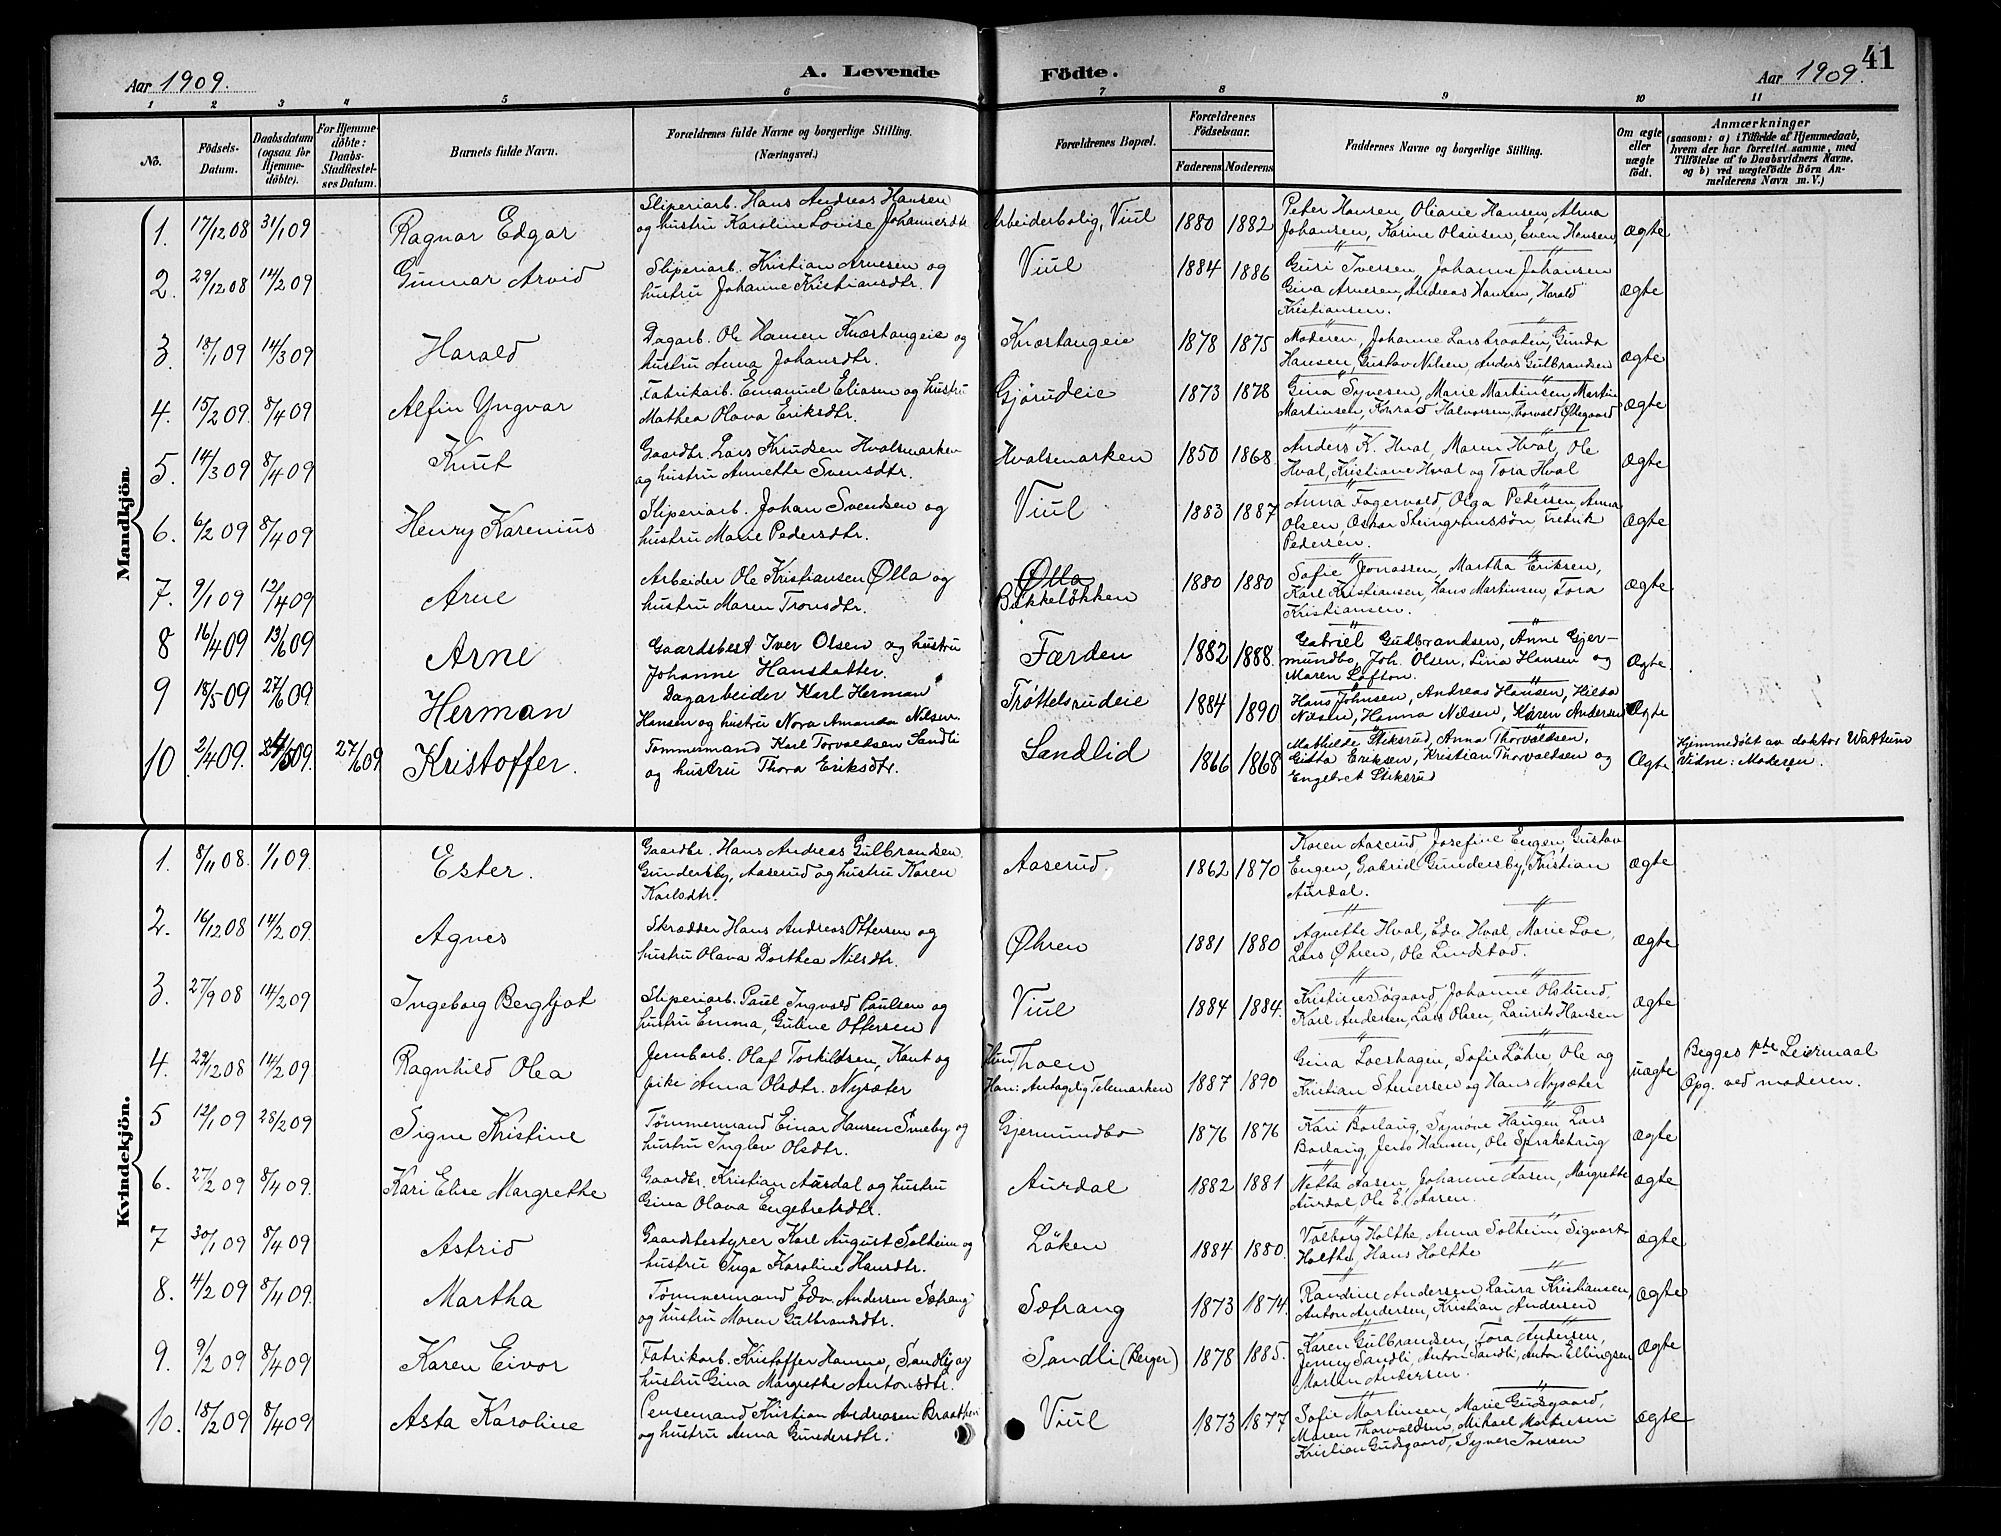 41
Aar 1909. A. Levende Födte. Aar 1909.
1 2 3 4 5 6 7 8 9 10 11
No.
Födsels-Datum.
Daabsdatum (ogsaa for Hjemme-döbte).
For Hjemme-döbte: Daabs-Stadfæstel-ses Datum.
Barnets fulde Navn.
Forældrenes fulde Navne og borgerlige Stilling. (Næringsvei.)
Forældrenes Bopæl.
Forældrenes Födselsaar.
Faderens Moderens
Faddernes Navne og borgerlige Stilling.
Om ægte eller uægte födt.
Anmærkninger
(saasom: a) i Tilfælde af Hjemmedaab, hvem der har forrettet samme, med Tilföielse af to Daabsvidners Navne, og b) ved uægtefödte Börn An-melderens Navn m. V.)
Mandkjön.
1. 17/12 08 31/1 09 Ragnar Edgar
Sliperiarb. Hans Andreas Hansen
og hustru Karoline Lovise Johannesdtr.
Arbeiderbolig, Viul 1880 1882
Peter Hansen, Oleane Hansen, Alma
Johansen, Karine Olausen, Even Hansen,
ægte
2. 29/12 08 14/2 09 Gunnar Arvid
Sliperiarb. Kristian Arnesen og
hustru Johanne Kristiansdtr.
Viul 1884 1886
Guri Iversen, Johanne Johansen
Gina Arnesen, Andreas Hansen, Harald
Kristiansen.
ægte
3. 18/1 09 14/3 09 Harald
Dagarb. Ole Hansen Knæstangeie og
hustru Anna Johansdtr.
Knæstangeie 1878 1875
Moderen, Johanne Larsbraaten, Gunda
Hansen, Gustav Nilsen, Anders Gulbrandsen
ægte
4. 15/2 09 8/4 09 Alfin Yngvar
Fabrikarb. Emanuel Eliasen og hustru
Mathea Olava Eriksdtr.
Gjörudeie 1873 1878
Gina Syvesen, Marie Martinsen, Martin
Martinsen, Konrad Halvorsen, Thorvald Ødegaard
ægte
5. 14/3 09 8/4 09 Knut
Gaardbr. Lars Knudsen Hvalsmarken
og hustru Annette Svensdtr.
Hvalsmarken 1850 1868
Anders K. Hval, Maren Hval, Ole
Hval, Kristiane Hval og Tora Hval
ægte
6. 6/2 09 8/4 09 Henry Karenius
Sliperiarb. Johan Svendsen og
hustru Marie Pedersdtr.
Viul 1883 1887
Anna Fagervold, Olga Pedersen, Anna
Olsen, Oskar Steingrimssön, Fredrik
Pedersen.
ægte
7. 9/1 09 12/4 09 Arne
Arbeider Ole Kristiansen Ølla og
hustru Maren Tronsdtr.
Ølla
Bakkelökken 1880 1880
Sofie Jonassen, Martha Eriksen,
Karl Kristiansen, Hans Martinsen, Tora
Kristiansen.
ægte
8 16/4 09 13/6 09 Arne
Gaardsbest Iver Olsen og hustru
Johanne Hansdatter.
Færden 1882 1888.
Gabriel Gulbrandsen, Anne Gjer-
mundbo, Joh. Olsen, Lina Hansen og
Maren Lofton.
Ægte
9 18/5 09 27/6 09 Herman
Dagarbeider Karl Herman
Hansen og hustru Nora Amanda Nilsen.
Tröttelsrudeie 1884 1890
Hans Johnsen, Andreas Hansen, Hilda
Nilsen, Hanna Nilsen, Karen Andersen
Ægte
10 2/4 09. 24/5 09. 27/6 09 Kristoffer.
Tømmermand Karl Torvaldsen Sandli
og hustru Thora Eriksdtr.
Sandlid 1866 1868
Mathilde Stiksrud, Anna Thorvaldsen,
Gitta Eriksen, Kristian Thorvaldsen og
Engebret Stiksrud
Ægte.
Hjemmedöbt av doktor Wattum
Vidne: Moderen.
Kvindekjön.
1. 8/11 08. 1/1 09. Ester.
Gaardbr. Hans Andreas Gulbrandsen
Gundersby, Aaserud og hustru Karen
Karlsdtr.
Aaserud 1862 1870
Karen Aaserud, Josefine Engen, Gustav
Engen, Gabriel Gundersby, Kristian
Aurdal.
ægte
2. 16/12 08 14/2 09. Agnes
Skrædder Hans Andreas Ottersen og
hustru Olava Dorthea Nilsdtr.
Øhren 1881 1880
Agnette Hval, Edv. Hval, Marie Loe,
Lars Øhren, Ole Lindstad.
ægte
3. 27/9 08 14/2 09 Ingeborg Bergljot
Sliperiarb. Paul Ingvald Paulsen og
hustru Emma, Guline Ottersen
Viul 1884 1884.
Kristine Søgaard, Johanne Olslund,
Karl Andersen, Lars Olsen, Laurits Hansen
ægte
4. 29/12 08 14/2 09 Ragnhild Olea
Jernbarb. Olaf Torkildsen, Kaut og
pike Anna Olsdtr. Nysæter
Hun Thoen
Han: Antagelig Telemarken 1887 1890
Gina Loeshagen, Sofie Löhre, Ole og
Kristian Stenersen og Hans Nysæter
uægte
Begges 1ste Leiermaal
Opg. ved moderen.
5 12/1 09 28/2 09 Signe Kristine
Tømmermand Einar Hansen Smeby og
hustru Inglev Olsdtr.
Gjermundbo 1876 1876
Kari Borlaug, Synöve Haugen, Lars
Borlaug, Jens Hansen, Ole Sprakehaug
ægte
6. 27/2 09 8/4 09. Kari Elise Margrethe
Gaardbr. Kristian Aurdal og hustru
Gina Olava Engebretsdtr.
Aurdal 1882 1881
Netta Aasen, Johanne Aasen, Margrethe
Aurdal Ole E. Aasen.
ægte
7 30/1 09 8/4 09 Astrid
Gaardsbestyrer Karl August Solheim og
hustru Inga Karoline Hansdtr.
Löken 1884 1880.
Valborg Holthe, Anna Solheim Sigvart
Holthe, Hans Holthe
ægte
8. 4/2 09 8/4 09. Martha
Tömmermand, Edv. Andersen Sætrang
og hustru Maren Gulbrandsdtr.
Sætrang 1873 1874.
Randine Andersen, Laura Kristiansen,
Anton Andersen, Kristian Andersen
ægte
9. 9/2 09 8/4 09 Karen Eivor
Fabrikarb. Kristoffer Hanno, Sandli og
hustru Gina Margrethe Antonsdtr.
Sandli (Berger) 1878 1885.
Karen Gulbrandsen, Tora Andersen,
Jenny Sandli, Anton Sandli, Anton Ellingsen
Martin Andersen.
ægte
10. 18/2 09 8/4 09 Asta Karoline
Pensemand Kristian Andreasen Braathen
og hustru Anna Gundersdtr.
Viul 1873 1877
Sofie Martinsen, Marie Gudsgaard,
Maren Thorvaldsen, Mikael Martinsen
Kristian Gudsgaard, Syver Iversen
ægte